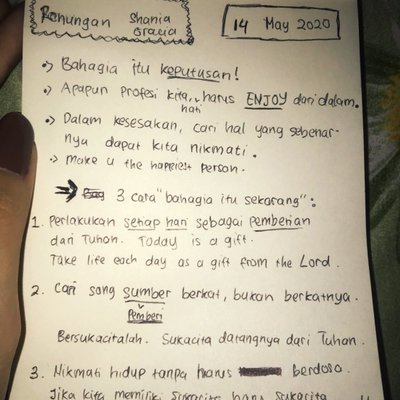 Renungan Shania
Gracia
14 May 2020
•> Bahagia itu keputusan!
•> Apapun profesi kita, harus ENJOY dari dalam
hati
•> Dalam kesesakan, cari hal yang sebenar-
nya dapat kita nikmati.
•> make u the happiest person.
3 cara "bahagia itu sekarang":
1. Perlakukan setiap hari sebagai pemberian
dari Tuhan. Today is a gift.
Take life each day as a gift from the Lord.
2. Cari sang sumber berkat, bukan berkatnya.
Pemberi
Bersukacitalah. Sukacita datangnya dari Tuhan.
3. Nikmati hidup tanpa harus berdosa.
Jika kita memiliki sukacita